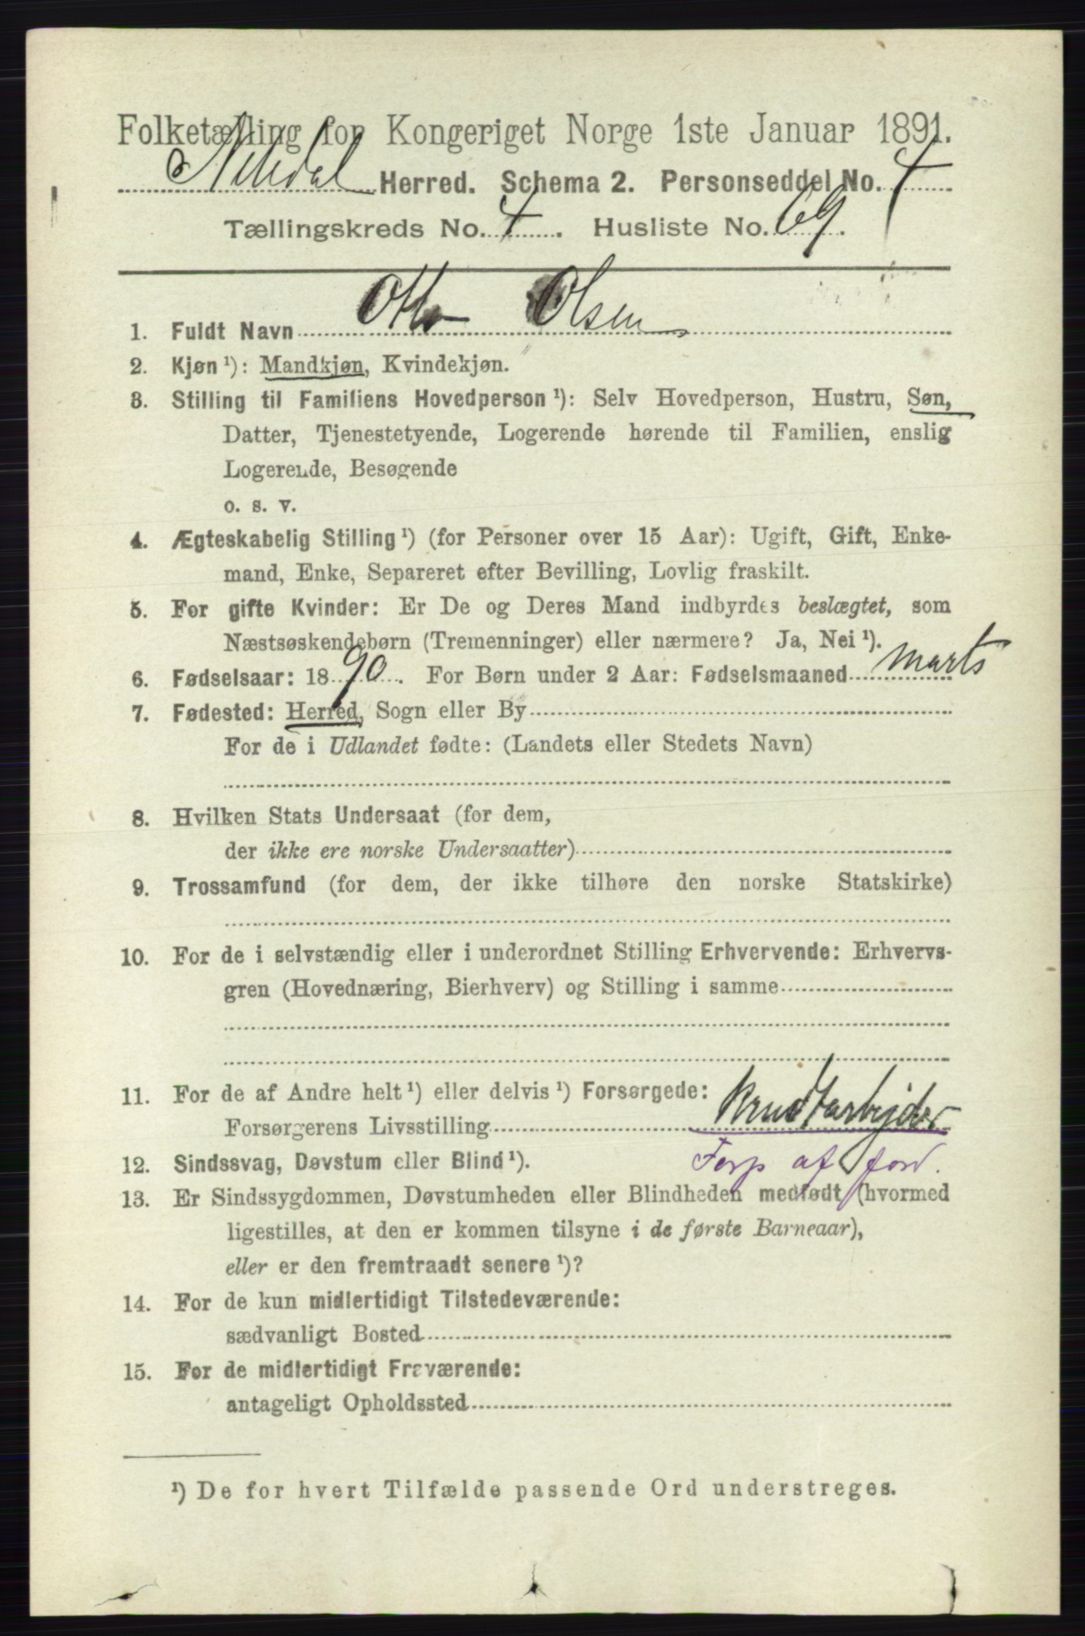 Folketælling for Kongeriget Norge 1ste Januar 1891.
Nitedal Herred. Schema 2. Personseddel No. 4
Tællingskreds No. 4. Husliste No. 69.
1. Fuldt Navn Otto Olsen
2. Kjøn ¹): Mandkjøn, Kvindekjøn.
3. Stilling til Familiens Hovedperson ¹): Selv Hovedperson, Hustru, Søn,
Datter, Tjenestetyende, Logerende hørende til Familien, enslig
Logerende, Besøgende
o. s. v.
4. Ægteskabelig Stilling ¹) (for Personer over 15 Aar): Ugift, Gift, Enke-
mand, Enke, Separeret efter Bevilling, Lovlig fraskilt.
5. For gifte Kvinder: Er De og Deres Mand indbyrdes beslægtet, som
Næstsøskendebørn (Tremenninger) eller nærmere? Ja, Nei ¹).
6. Fødselsaar: 1890. For Børn under 2 Aar: Fødselsmaaned marts
7. Fødested: Herred, Sogn eller By
For de i Udlandet fødte: (Landets eller Stedets Navn)
8. Hvilken Stats Undersaat (for dem,
der ikke ere norske Undersaatter)
9. Trossamfund (for dem, der ikke tilhøre den norske Statskirke)
10. For de i selvstændig eller i underordnet Stilling Erhvervende: Erhvervs-
gren (Hovednæring, Bierhverv) og Stilling i samme
11. For de af Andre helt ¹) eller delvis ¹) Forsørgede:
Forsørgerens Livsstilling Krudtarbejder
12. Sindssvag, Døvstum eller Blind ¹). Forp af ford.
13. Er Sindssygdommen, Døvstumheden eller Blindheden medfødt (hvormed
ligestilles, at den er kommen tilsyne i de første Barneaar),
eller er den fremtraadt senere ¹)?
14. For de kun midlertidigt Tilstedeværende:
sædvanligt Bosted
15. For de midlertidigt Fraværende:
antageligt Opholdssted
¹) De for hvert Tilfælde passende Ord understreges.